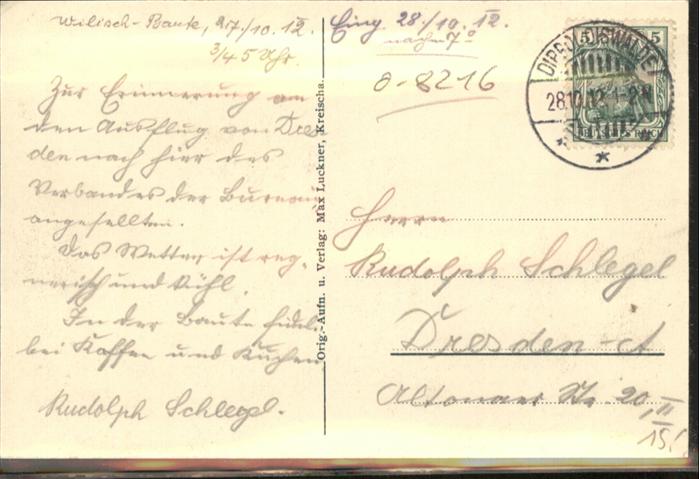 Wilisch-Baute, 27./10.12.
3/4 5 Uhr.
Zur Erinnerung an
den Ausflug von Dres
den nach hier des
Verbandes der Bureau
angestellten.
Das Wetter ist reg-
nerisch und kühl.
In der Baute fidel
bei Kaffee und Kuchen
Rudolph Schlegel.
Orig.-Aufn. u. Verlag: Max Luckner, Kreischa.
Eing 28./10. 12.
nachm 7°
0-8216
5 5
DEUTSCHES REICH
DIPPOLDISWALDE
28.10.12. 1-2 N
Herrn
Rudolph Schlegel
Dresden-A
Altonaer Str. 20, II
15!